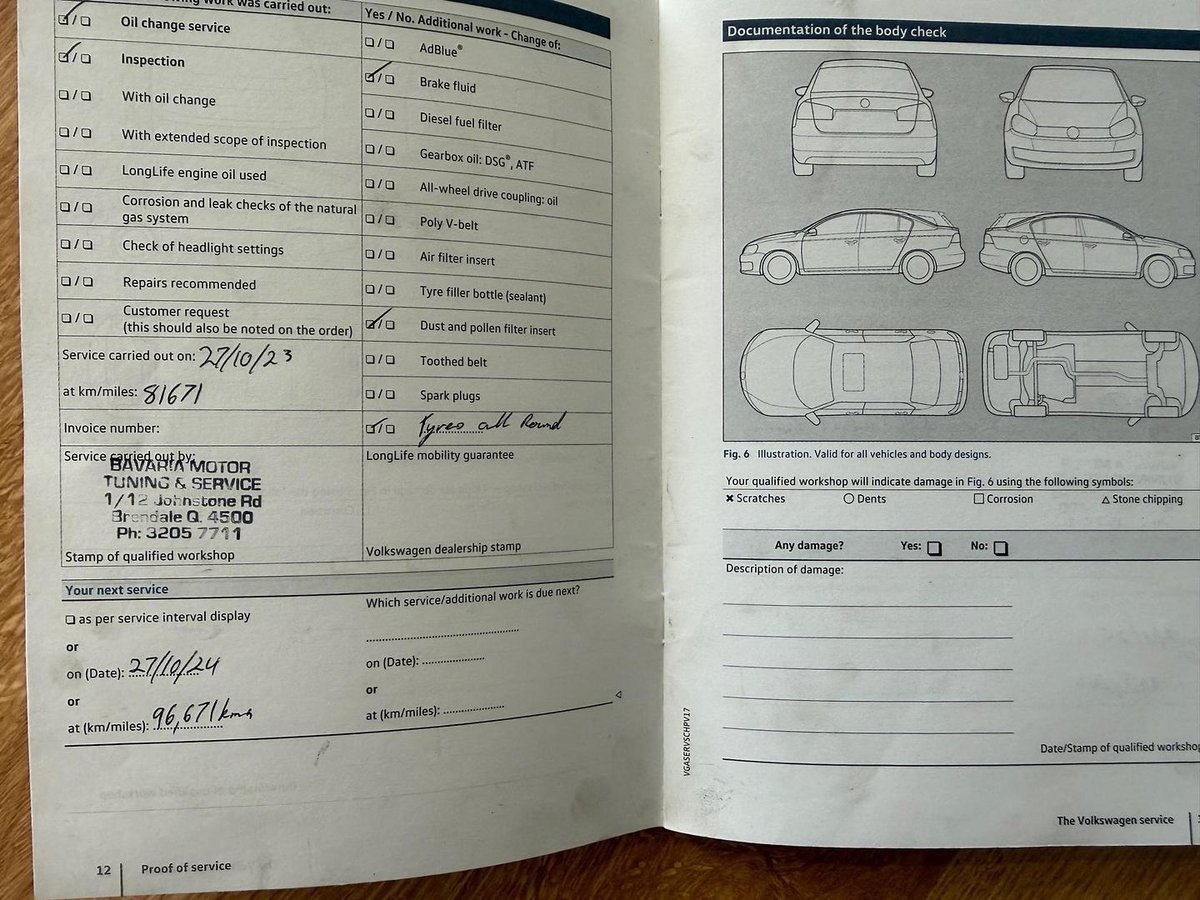 work was carried out:
☑/☐ Oil change service
☑/☐ Inspection
☐/☐ With oil change
☐/☐ With extended scope of inspection
☐/☐ LongLife engine oil used
☐/☐ Corrosion and leak checks of the natural
gas system
☐/☐ Check of headlight settings
☐/☐ Repairs recommended
☐/☐ Customer request
(this should also be noted on the order)
Service carried out on: 27/10/23
at km/miles: 81671
Invoice number:
Service carried out by:
BAVARIA MOTOR
TUNING & SERVICE
1/12 Johnstone Rd
Brendale Q. 4500
Ph: 3205 7711
Stamp of qualified workshop
Yes / No. Additional work - Change of:
☐/☐ AdBlue®
☑/☐ Brake fluid
☐/☐ Diesel fuel filter
☐/☐ Gearbox oil: DSG®, ATF
☐/☐ All-wheel drive coupling: oil
☐/☐ Poly V-belt
☐/☐ Air filter insert
☐/☐ Tyre filler bottle (sealant)
☑/☐ Dust and pollen filter insert
☐/☐ Toothed belt
☐/☐ Spark plugs
☑/☐ Tyres all Round
LongLife mobility guarantee
Volkswagen dealership stamp
Your next service
☐ as per service interval display
or
on (Date): 27/10/24
or
at (km/miles): 96,671 kms
Which service/additional work is due next?
on (Date):
or
at (km/miles):
12 Proof of service
Documentation of the body check
Fig. 6 Illustration. Valid for all vehicles and body designs.
Your qualified workshop will indicate damage in Fig. 6 using the following symbols:
✖ Scratches ○ Dents □ Corrosion △ Stone chipping
Any damage? Yes: ❑ No: ❑
Description of damage:
VGASERVSCHPV17
Date/Stamp of qualified workshop
The Volkswagen service